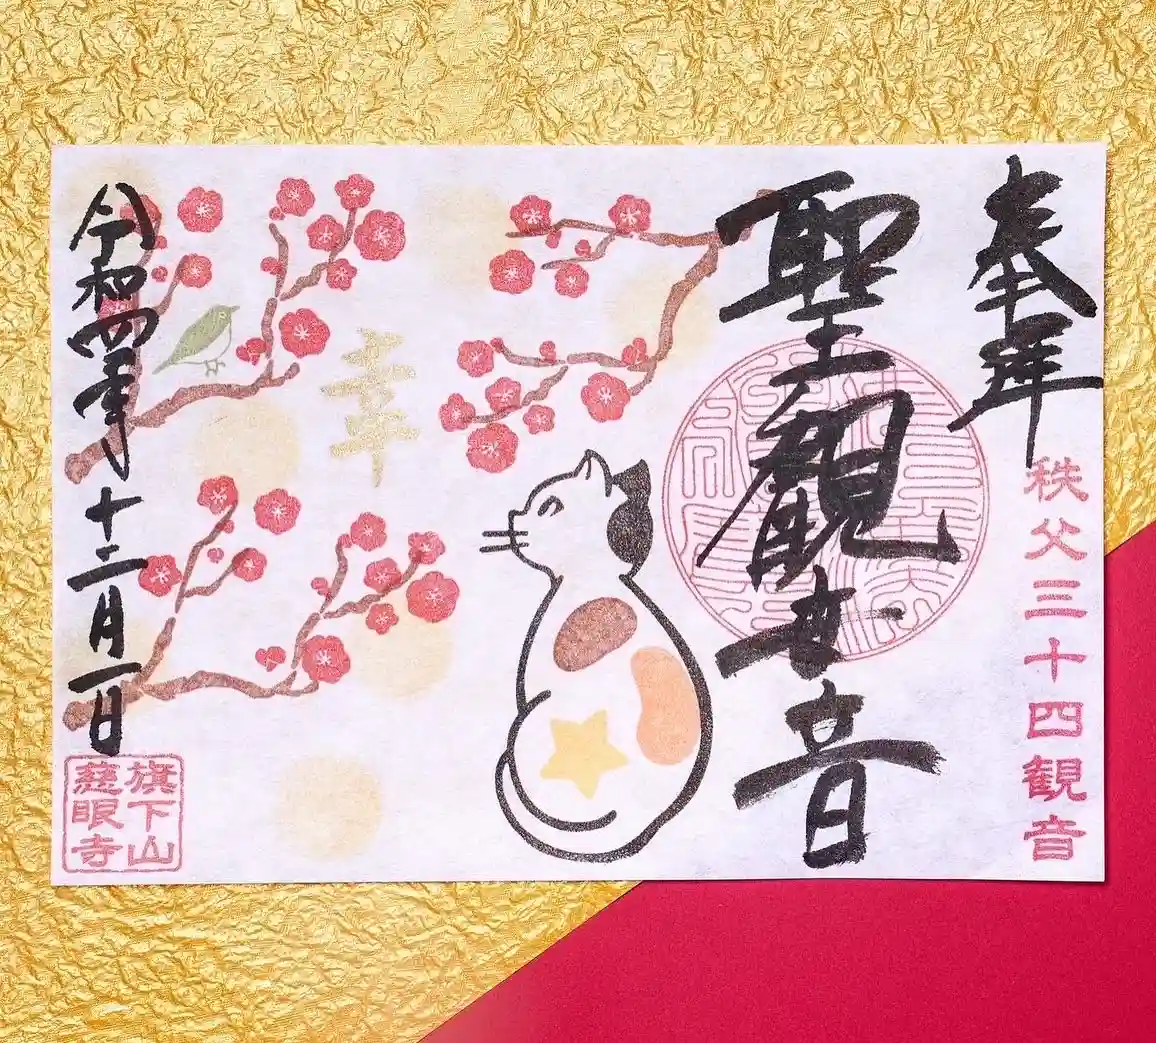 奉拝
秩父三十四観音
聖観世音
幸
令和四年
十二月一日
旗下山
慈眼寺